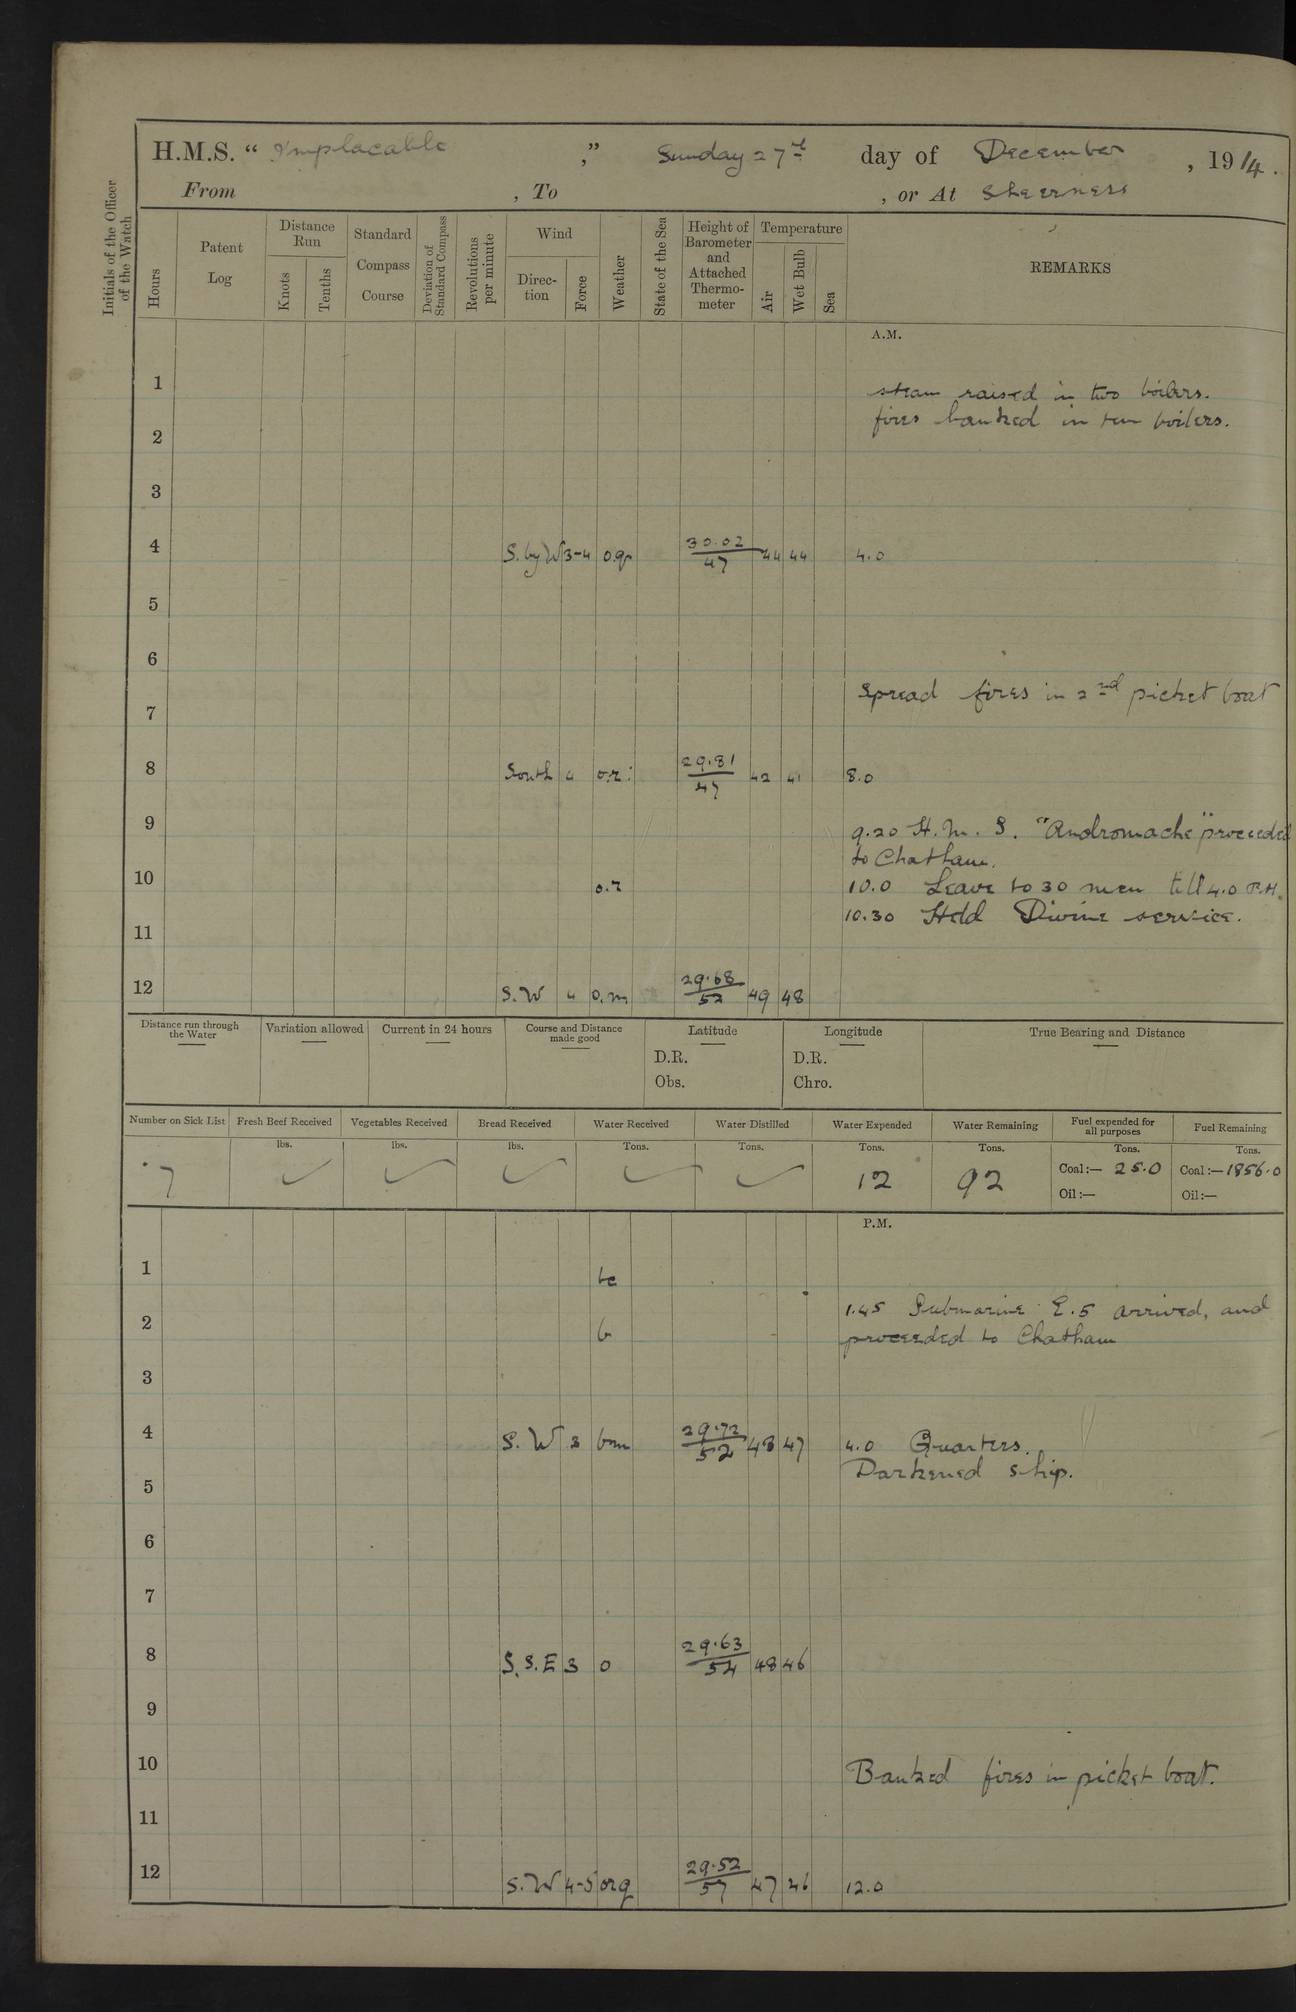 H.M.S. "Implacable," Sunday 27th day of December, 1914.
From , To , or At Sheerness
Initials of the Officer of the Watch
Hours
Patent Log
Distance Run
Knots
Tenths
Standard Compass Course
Deviation of Standard Compass
Revolutions per minute
Wind
Direc-tion
Force
Weather
State of the Sea
Height of Barometer and Attached Thermo-meter
Temperature
Air
Wet Bulb
Sea
REMARKS
A.M.
1
steam raised in two boilers.
2 fires banked in ten boilers.
3
4 S. by W 3-4 30.02/47 44 44 4.0
5
6
Spread fires in 2nd picket boat
7
8 South 4 29.81/47 42 41 8.0
9 9.20 H.M.S. "Andromache" proceeded
to Chatham.
10 o.r 10.0 Leave to 30 men till 4.0 P.M.
10.30 Held Divine service.
11
12 S.W 4 o.m 29.68/52 49 48
Distance run through the Water
Variation allowed
Current in 24 hours
Course and Distance made good
Latitude
D.R.
Obs.
Longitude
D.R.
Chro.
True Bearing and Distance
Number on Sick List
Fresh Beef Received
Vegetables Received
Bread Received
Water Received
Water Distilled
Water Expended
Water Remaining
Fuel expended for all purposes
Fuel Remaining
lbs. lbs. lbs. Tons. Tons. Tons. Tons. Tons. Tons.
7 ✓ ✓ ✓ ✓ ✓ 12 92 Coal:— 25.0 Coal:— 1856.0
Oil:— Oil:—
P.M.
1 bc
1.45 Submarine E.5 arrived, and
2 b proceeded to Chatham
3
4 S.W 3 bm 29.72/52 48 47 4.0 Quarters.
Darkened ship.
5
6
7
8 S.S.E 3 o 29.63/54 48 46
9
10 Banked fires in picket boat.
11
12 S.W 4-5 orq 29.52/57 47 46 12.0